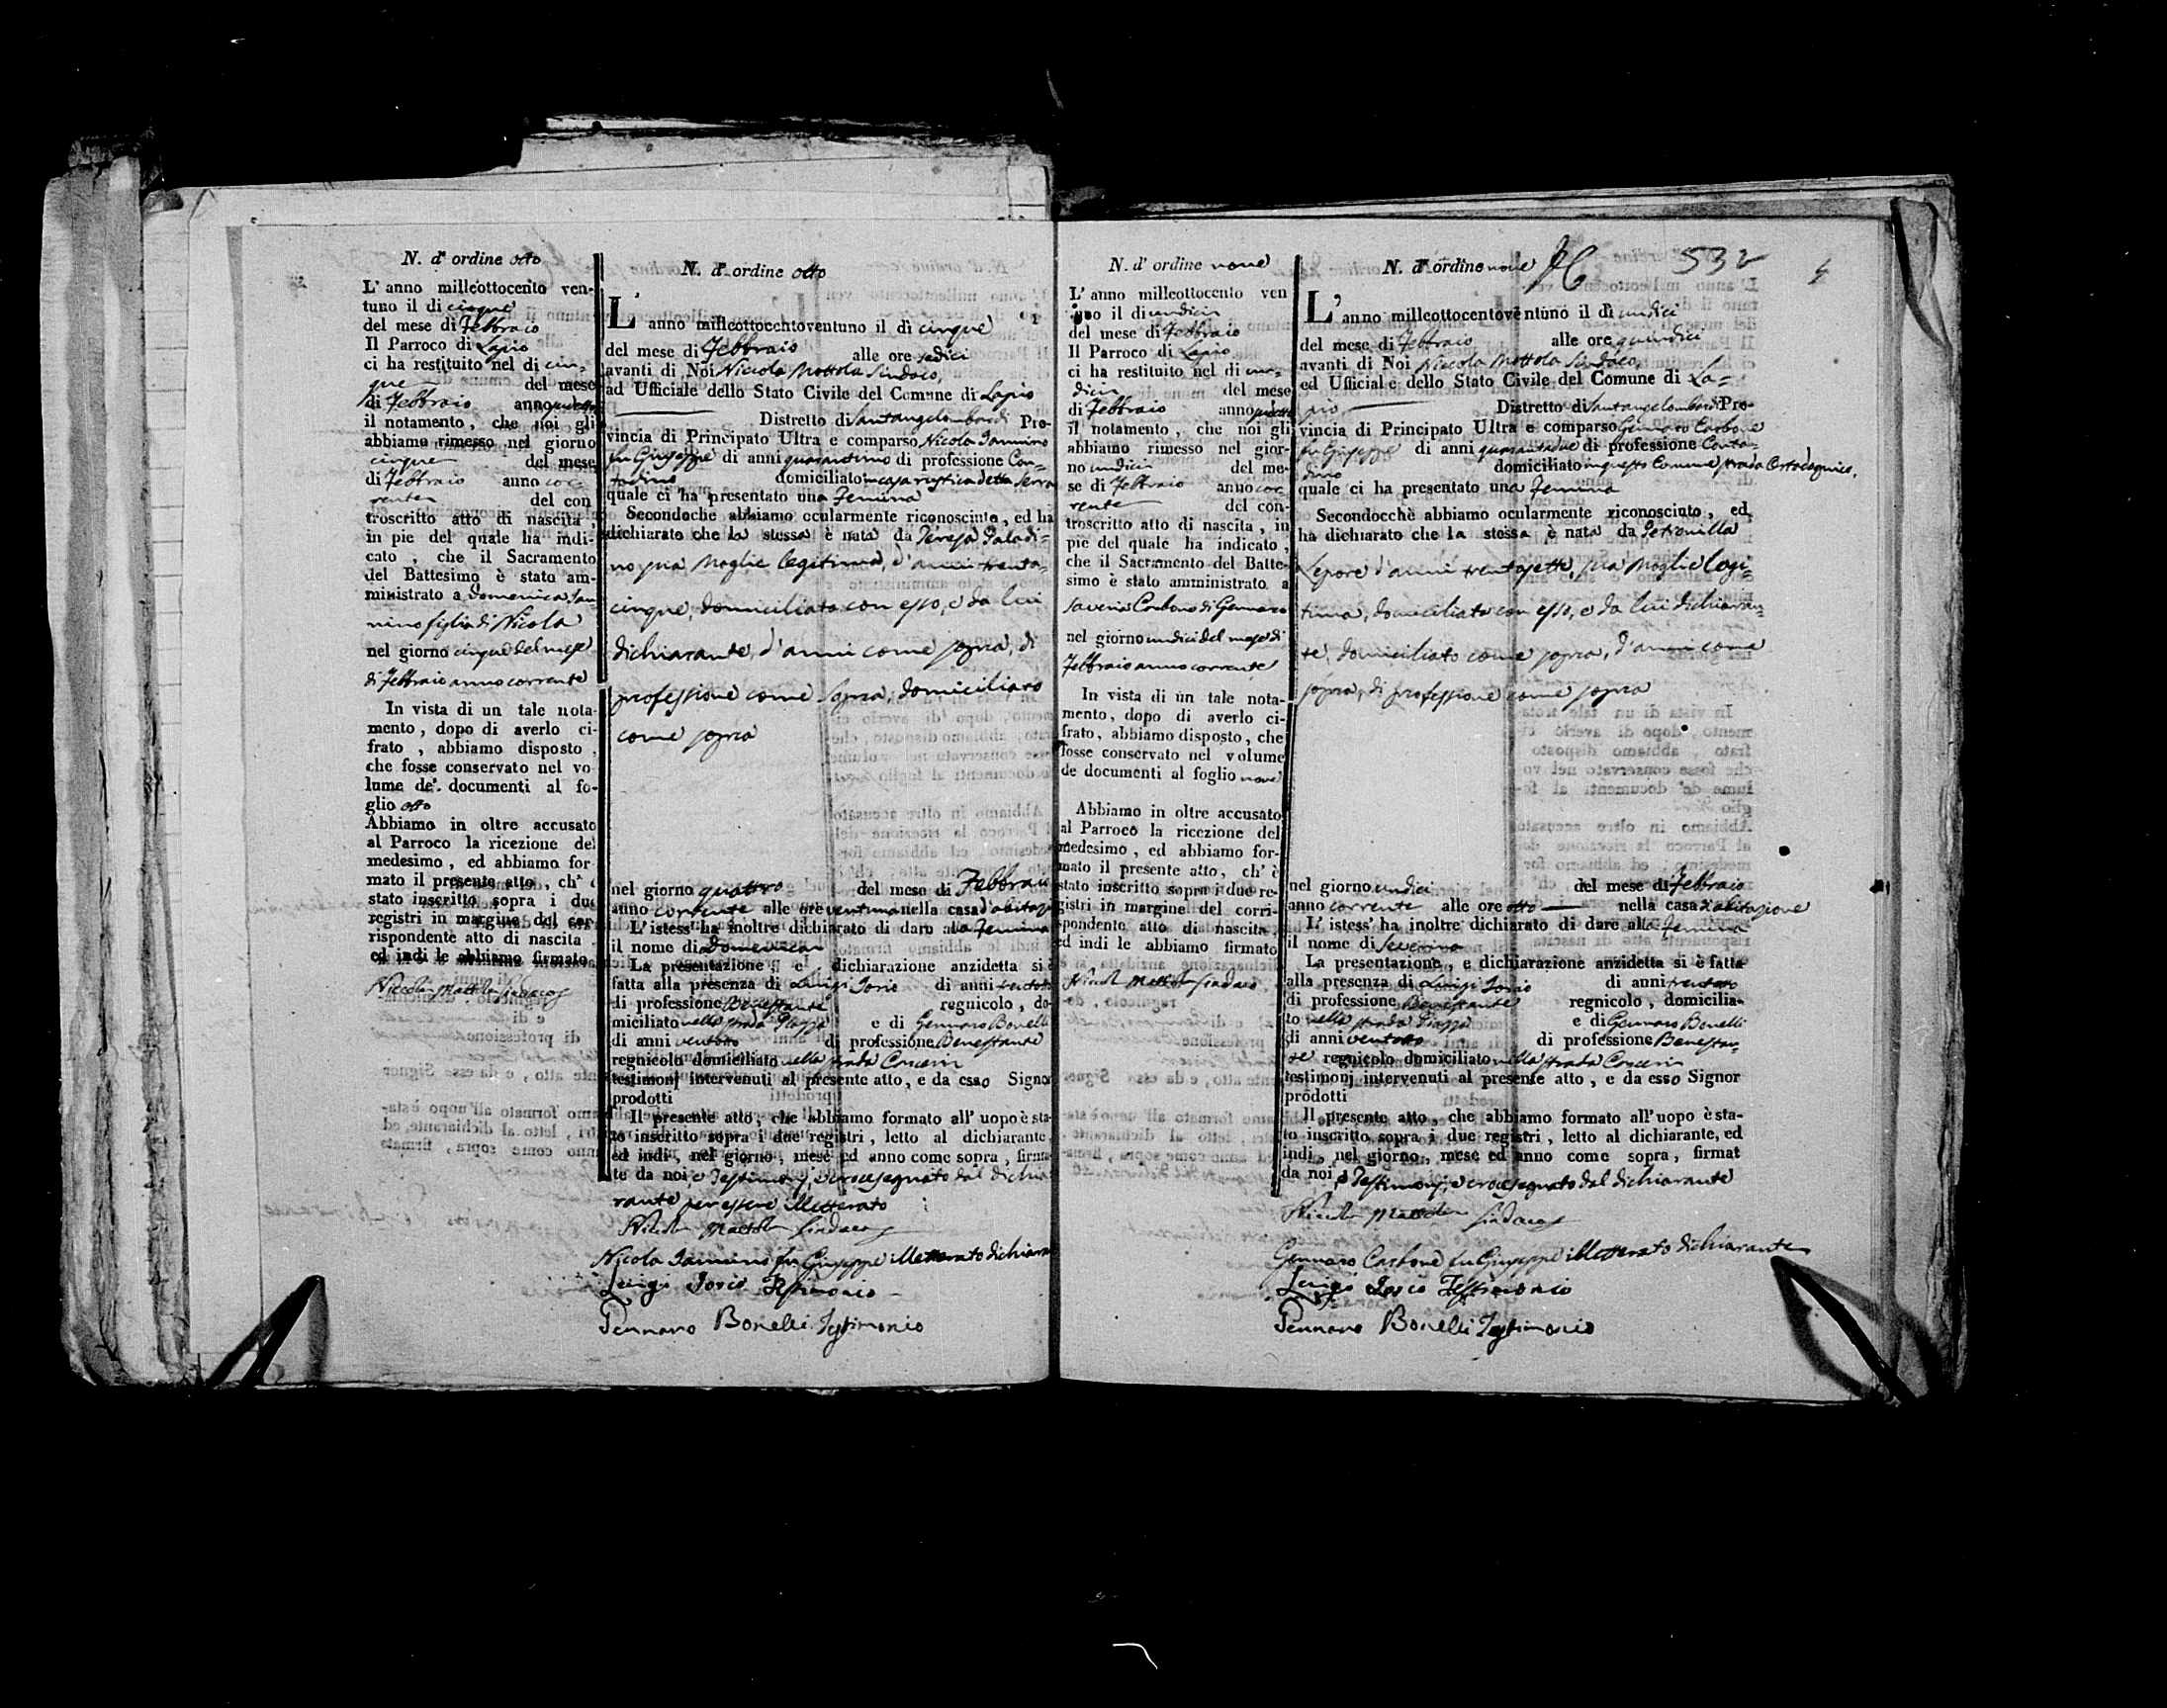 N. d'ordine otto
L' anno milleottocento ven-
tuno il di cinque
del mese di Febbraio
Il Parroco di Lapio
ci ha restituito nel di cin-
que del mese
di Febbraio anno
il notamento, che noi gli
abbiamo rimesso nel giorno
cinque del mese
di Febbraio anno cor-
rente del con
troscritto atto di nascita,
in pie del quale ha indi-
cato, che il Sacramento
del Battesimo è stato am-
ministrato a Domenica Ian-
nino figlia di Nicola
nel giorno cinque del mese
di Febbraio anno corrente
In vista di un tale nota-
mento, dopo di averlo ci-
frato, abbiamo disposto,
che fosse conservato nel vo-
lume de' documenti al fo-
glio otto
Abbiamo in oltre accusato
al Parroco la ricezione del
medesimo, ed abbiamo for-
mato il presente atto, ch' è
stato inscritto sopra i due
registri in margine del cor-
rispondente atto di nascita
ed indi le abbiamo firmato
Niccola Mottola Sindaco
N. d'ordine otto
L' anno milleottocentoventuno il di cinque
del mese di Febbraio alle ore sedici
avanti di Noi Niccola Mottola Sindaco,
ad Uffiziale dello Stato Civile del Comune di Lapio
Distretto di Santangelombardi Pro-
vincia di Principato Ultra e comparso Nicola Iannino
fu Giuseppe di anni quarantuno di professione Con-
tadino domiciliato in casa rustica detta Serra
quale ci ha presentato una Femina
Secondoche abbiamo ocularmente riconosciuto, ed ha
dichiarato che la stessa è nata da Teresa Paladi-
no sua Moglie legitima, d'anni trenta-
cinque, domiciliata con esso, e da lui
dichiarante, d'anni come sopra, di
professione come sopra, domiciliato
come sopra
nel giorno quattro del mese di Febbraio
anno corrente alle ore ventuna nella casa d'abitaz
L' istess' ha inoltre dichiarato di dare alla Femina
il nome di Domenica
La presentazione, e dichiarazione anzidetta si è
fatta alla presenza di Luigi Iorio di anni trentotto
di professione Benestante regnicolo, do-
miciliato nella strada Piazza e di Gennaro Bonelli
di anni ventotto di professione Benestante
regnicolo domiciliato nella strada
testimonj intervenuti al presente atto, e da esso Signor
prodotti
Il presente atto, che abbiamo formato all' uopo è sta-
to inscritto sopra i due registri, letto al dichiarante,
ed indi, nel giorno, mese ed anno come sopra, firma-
te da noi, e Testimonj, e crocesegnato dal dichia-
rante per essere illetterato
Niccola Mottola Sindaco
Nicola Iannino fu Giuseppe illetterato dichiara
Luigi Iorio Testimonio
Gennaro Bonelli Testimonio
N. d' ordine nove
L' anno milleottocento ven
uno il di undici
del mese di Febbraio
Il Parroco di Lapio
ci ha restituito nel di un-
dici del mese
di Febbraio anno
il notamento, che noi gli
abbiamo rimesso nel gior-
no undici del me-
se di Febbraio anno cor-
rente del con-
troscritto atto di nascita, in
pie del quale ha indicato,
che il Sacramento del Batte-
simo è stato amministrato a
Saveria Carbone di Gennaro
nel giorno undici del mese di
Febbraio anno corrente
In vista di un tale nota-
mento, dopo di averlo ci-
frato, abbiamo disposto, che
fosse conservato nel volume
de documenti al foglio nove
Abbiamo in oltre accusato
al Parroco la ricezione del
medesimo, ed abbiamo for-
mato il presente atto, ch' è
stato inscritto sopra i due re-
gistri in margine del corri-
spondente atto di nascita,
ed indi le abbiamo firmato
Niccola Mottola Sindaco
N. d'ordine nove 532
L' anno milleottocentoventuno il di undici
del mese di Febbraio alle ore quindici
avanti di Noi Niccola Mottola Sindaco,
ed Ufficiale dello Stato Civile del Comune di La-
pio Distretto di Santangelombardi Pro-
vincia di Principato Ultra e comparso Gennaro Carbone
fu Giuseppe di anni quarantadue di professione Conta-
dino domiciliato in questo Comune strada
quale ci ha presentato una Femina
Secondocchè abbiamo ocularmente riconosciuto, ed
ha dichiarato che la stessa è nata da Petronilla
Lepore d'anni trentasette, sua Moglie legi-
tima, domiciliata con esso, e da lui dichiaran-
te, domiciliato come sopra, d'anni come
sopra, di professione come sopra
nel giorno undici del mese di Febbraio
anno corrente alle ore otto nella casa d'abitazione
L' istess' ha inoltre dichiarato di dare alla Femina
il nome di
La presentazione, e dichiarazione anzidetta si è fatta
alla presenza di Luigi Iorio di anni trentotto
di professione Benestante regnicolo, domicilia-
to nella strada Piazza e di Gennaro Bonelli
di anni ventotto di professione Benestan-
te regnicolo domiciliato nella strada
testimonj intervenuti al presente atto, e da esso Signor
prodotti
Il presente atto, che abbiamo formato all' uopo è sta-
to inscritto sopra i due registri, letto al dichiarante, ed
indi, nel giorno, mese ed anno come sopra, firmat
da noi, e Testimonj, e crocesegnato dal dichiarante
Niccola Mottola Sindaco
Gennaro Carbone fu Giuseppe illetterato dichiarante
Luigi Iorio Testimonio
Gennaro Bonelli Testimonio